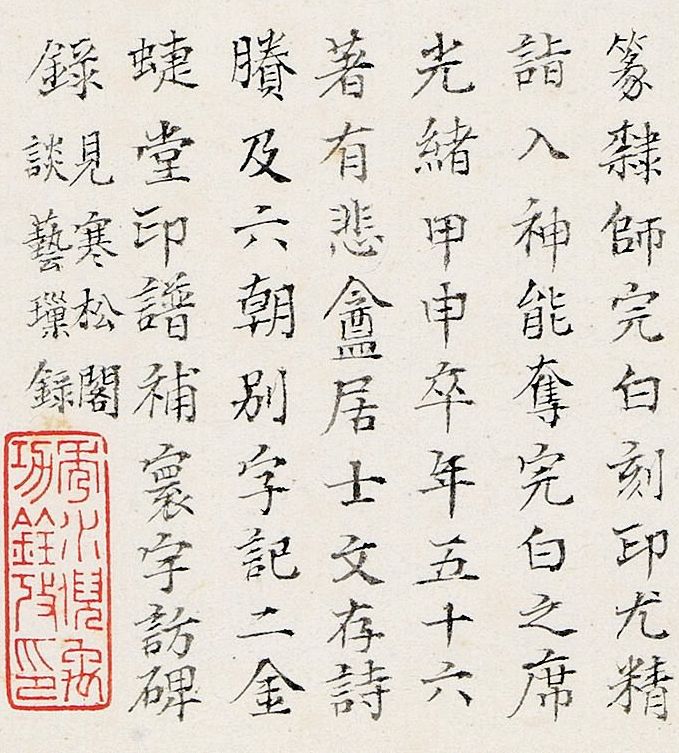 篆隸師完白刻印尤精
詣入神能奪完白之席
光緒甲申卒年五十六
著有悲盦居士文存詩
賸及六朝別字記二金
蜨堂印譜補寰宇訪碑
錄見寒松閣
談藝璅錄